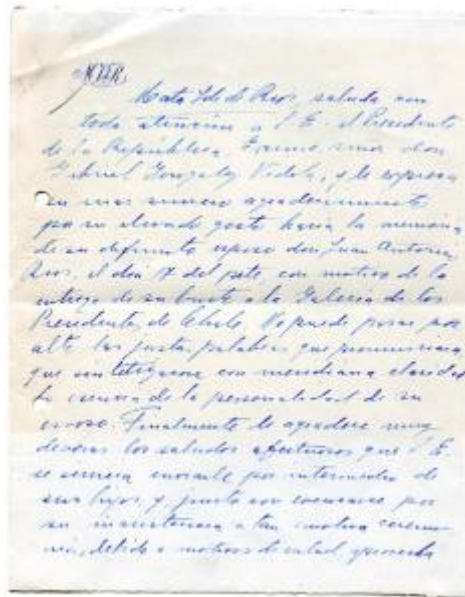 Marta Ide de Rios, saluda con
toda atención a S. E. el Presidente
de la Republica, Excmo. señor don
Gabriel González Videla, y le expresa
su mas sincero agradecimiento
por su elevado gesto hacia la memoria
de su difunto esposo don Juan Antonio
Rios, el dia 7 del pte, con motivo de la
entrega de su busto a la Galeria de los
Presidentes de Chile. No puede pasar por
alto las justas palabras que pronunciara
que sintetizaron con meridiana claridad
la esencia de la personalidad de su
esposo. Finalmente le agradece muy
deveras los saludos afectuosos que S. E.
se sirviera enviarle por intermedio de
sus hijos y, junto con excusarse por
su inasistencia a tan emotiva ceremo
nia, debido a motivos de salud,